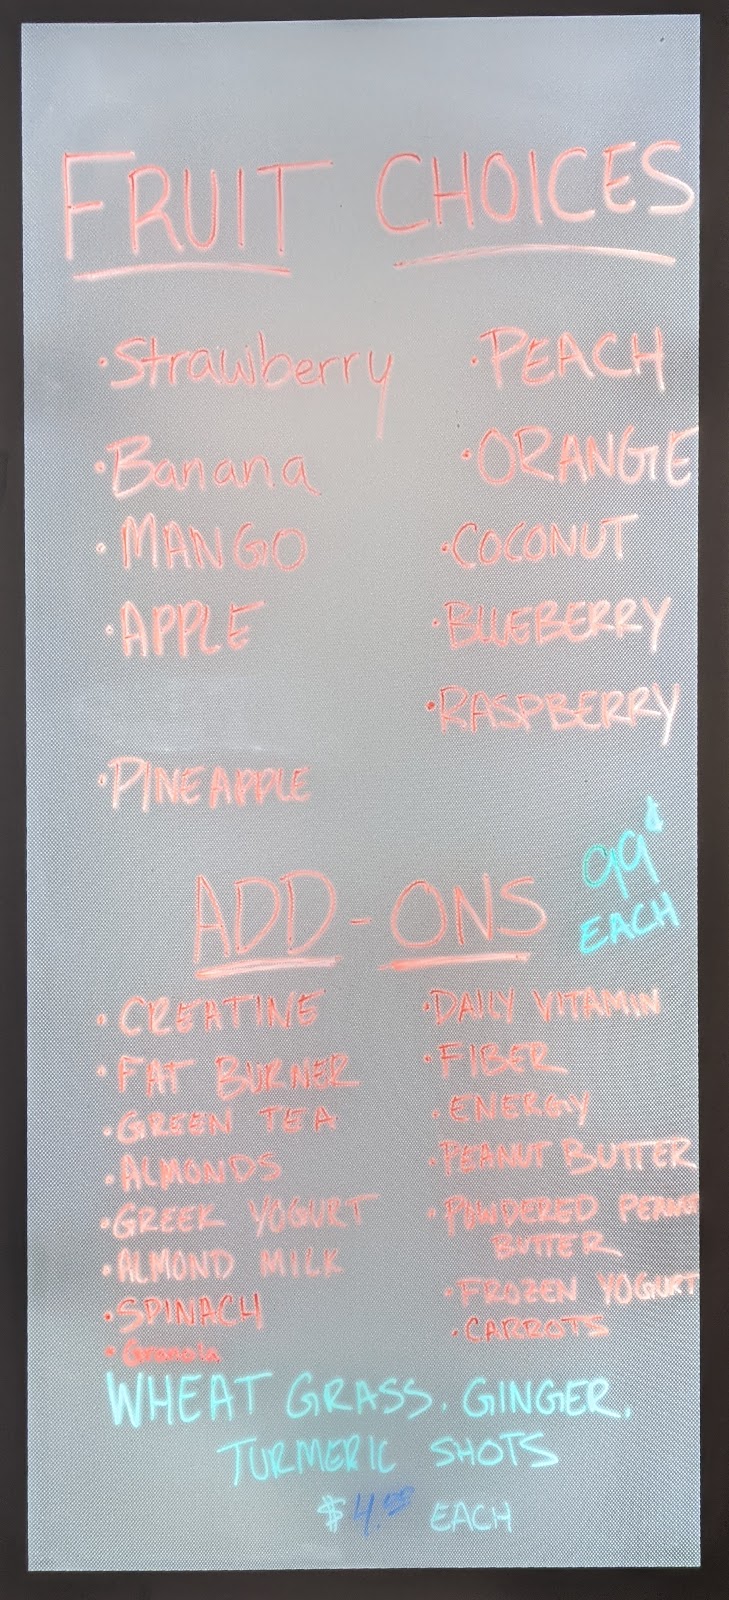 FRUIT CHOICES
• Strawberry
• Banana
• MANGO
• APPLE
• PINEAPPLE
• PEACH
• ORANGE
• COCONUT
• BLUEBERRY
• RASPBERRY
ADD-ONS
99¢
EACH
• CREATINE
• FAT BURNER
• GREEN TEA
• ALMONDS
• GREEK YOGURT
• ALMOND MILK
• SPINACH
• Granola
• DAILY VITAMIN
• FIBER
• ENERGY
• PEANUT BUTTER
• POWDERED PEANUT
BUTTER
• FROZEN YOGURT
• CARROTS
WHEAT GRASS, GINGER,
TURMERIC SHOTS
$4.00 EACH